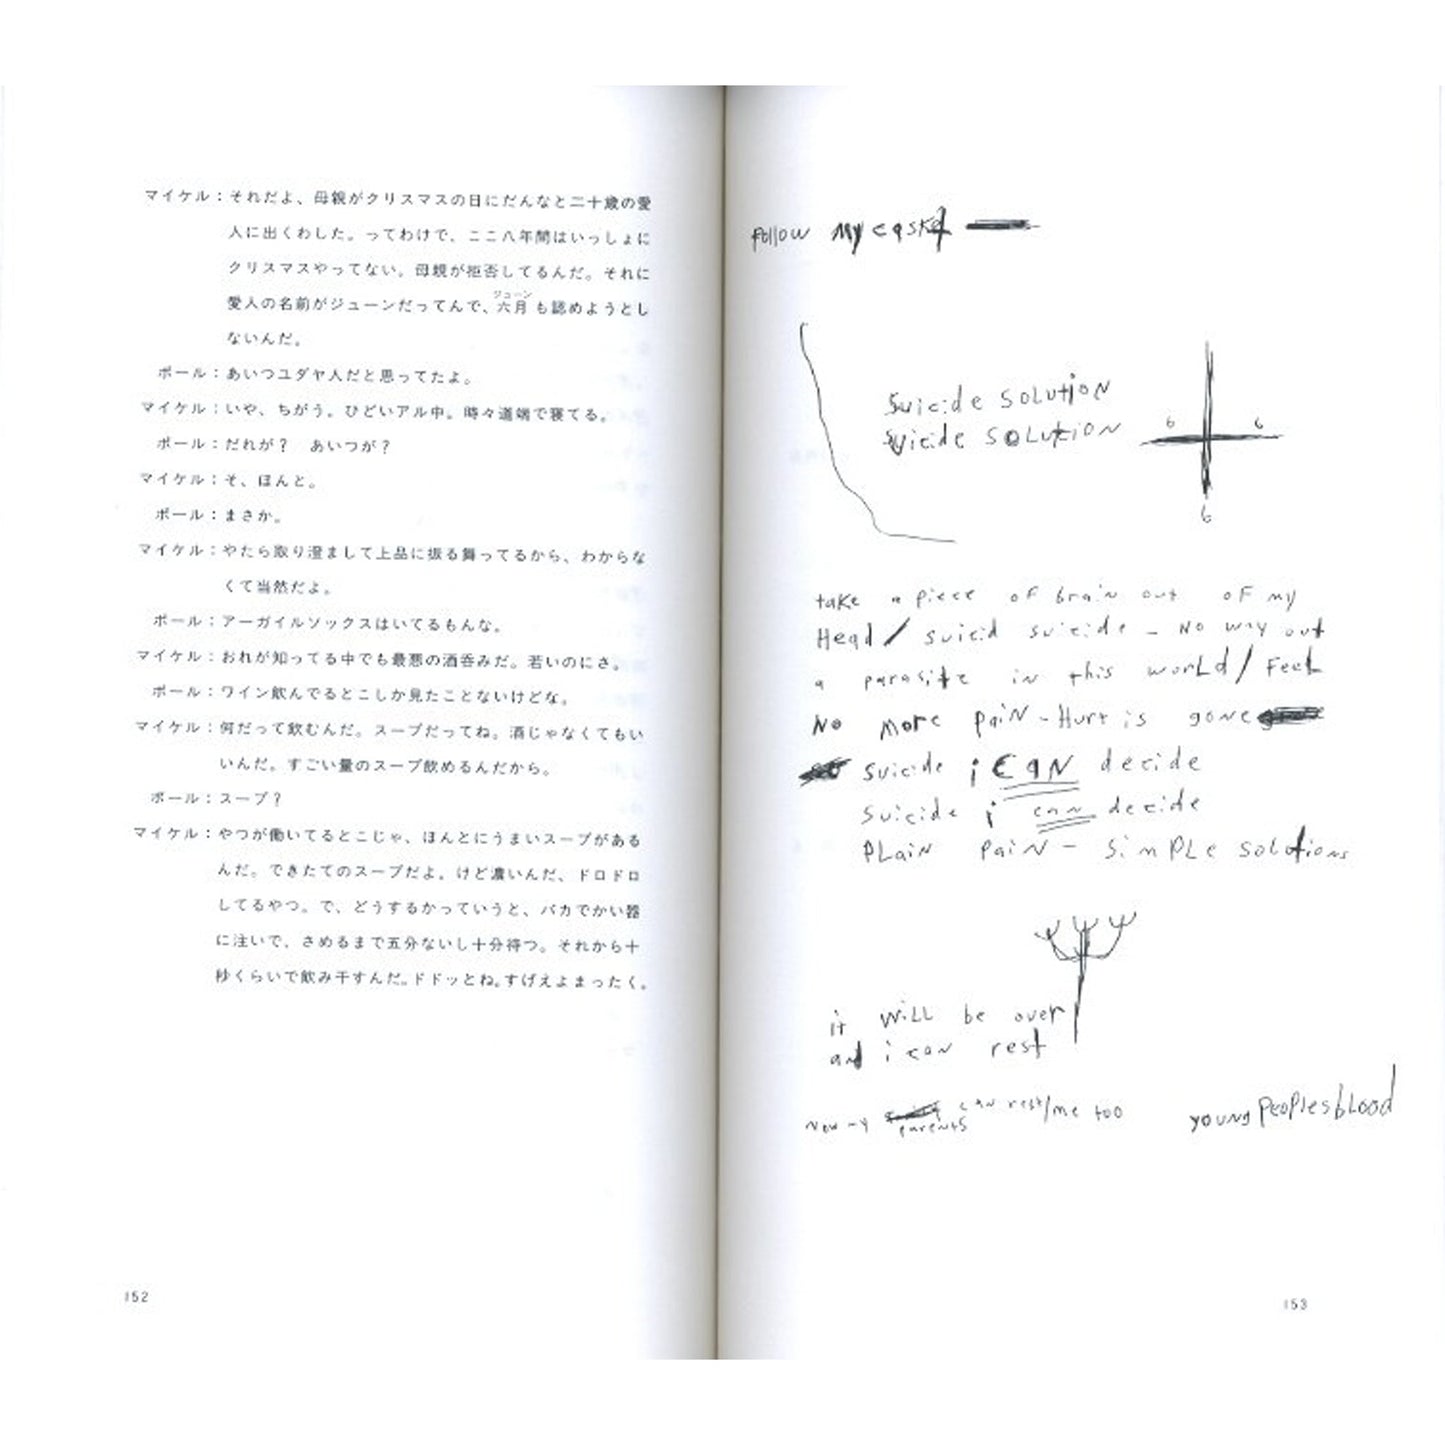 マイケル：それだよ、母親がクリスマスの日にだんなと二十歳の愛
人に出くわした。ってわけで、ここ八年間はいっしょに
クリスマスやってない。母親が拒否してるんだ。それに
ジューン
愛人の名前がジューンだってんで、六月も認めようとし
ないんだ。
ポール：あいつユダヤ人だと思ってたよ。
マイケル：いや、ちがう。ひどいアル中。時々道端で寝てる。
ポール：だれが？　あいつが？
マイケル：そ、ほんと。
ポール：まさか。
マイケル：やたら取り澄まして上品に振る舞ってるから、わからな
くて当然だよ。
ポール：アーガイルソックスはいてるもんな。
マイケル：おれが知ってる中でも最悪の酒呑みだ。若いのにさ。
ポール：ワイン飲んでるとこしか見たことないけどな。
マイケル：何だって飲むんだ。スープだってね。酒じゃなくてもい
いんだ。すごい量のスープ飲めるんだから。
ポール：スープ？
マイケル：やつが働いてるとこじゃ、ほんとにうまいスープがある
んだ。できたてのスープだよ。けど濃いんだ、ドロドロ
してるやつ。で、どうするかっていうと、バカでかい器
に注いで、さめるまで五分ないし十分待つ。それから十
秒くらいで飲み干すんだ。ドドッとね。すげえよまったく。
152
Follow my casket
Suicide solution
Suicide solution
6 6
6
take a piece of brain out of my
Head / suicid suicide - No way out
a parasite in this world / Feel
No more pain - Hurt is gone
suicide i CAN decide
suicide i can decide
PLain pain - simple solutions
it will be over
and i can rest
now my parents can rest/me too
young peoples blood
153